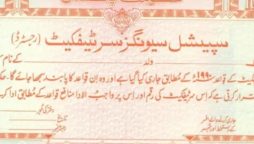 سپیشل سیونگز سرٹیفکیٹ (رجسٹرڈ)
ولد
کے نام
کے قواعد ۱۹۹۰ء کے مطابق جاری کیا گیا ہے اور وہ ان قواعد کا پابند سمجھا جائے گا۔
قرار کرتی ہے کہ اس سرٹیفکیٹ کی رقم اور اس پر واجب الادا منافع قواعد کے مطابق ادا کر
دستخط